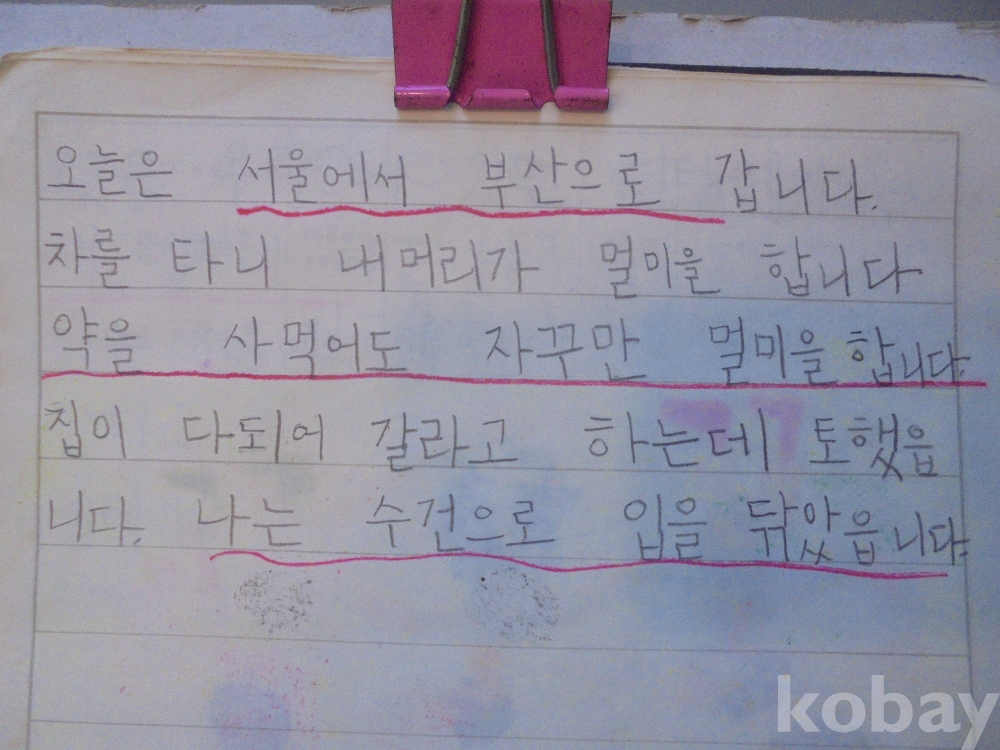 오늘은 서울에서 부산으로 갑니다.
차를 타니 내머리가 멀미을 합니다
약을 사먹어도 자꾸만 멀미을 합니다.
집이 다되어 갈라고 하는데 토했읍
니다. 나는 수건으로 입을 닦았읍니다.
kobay